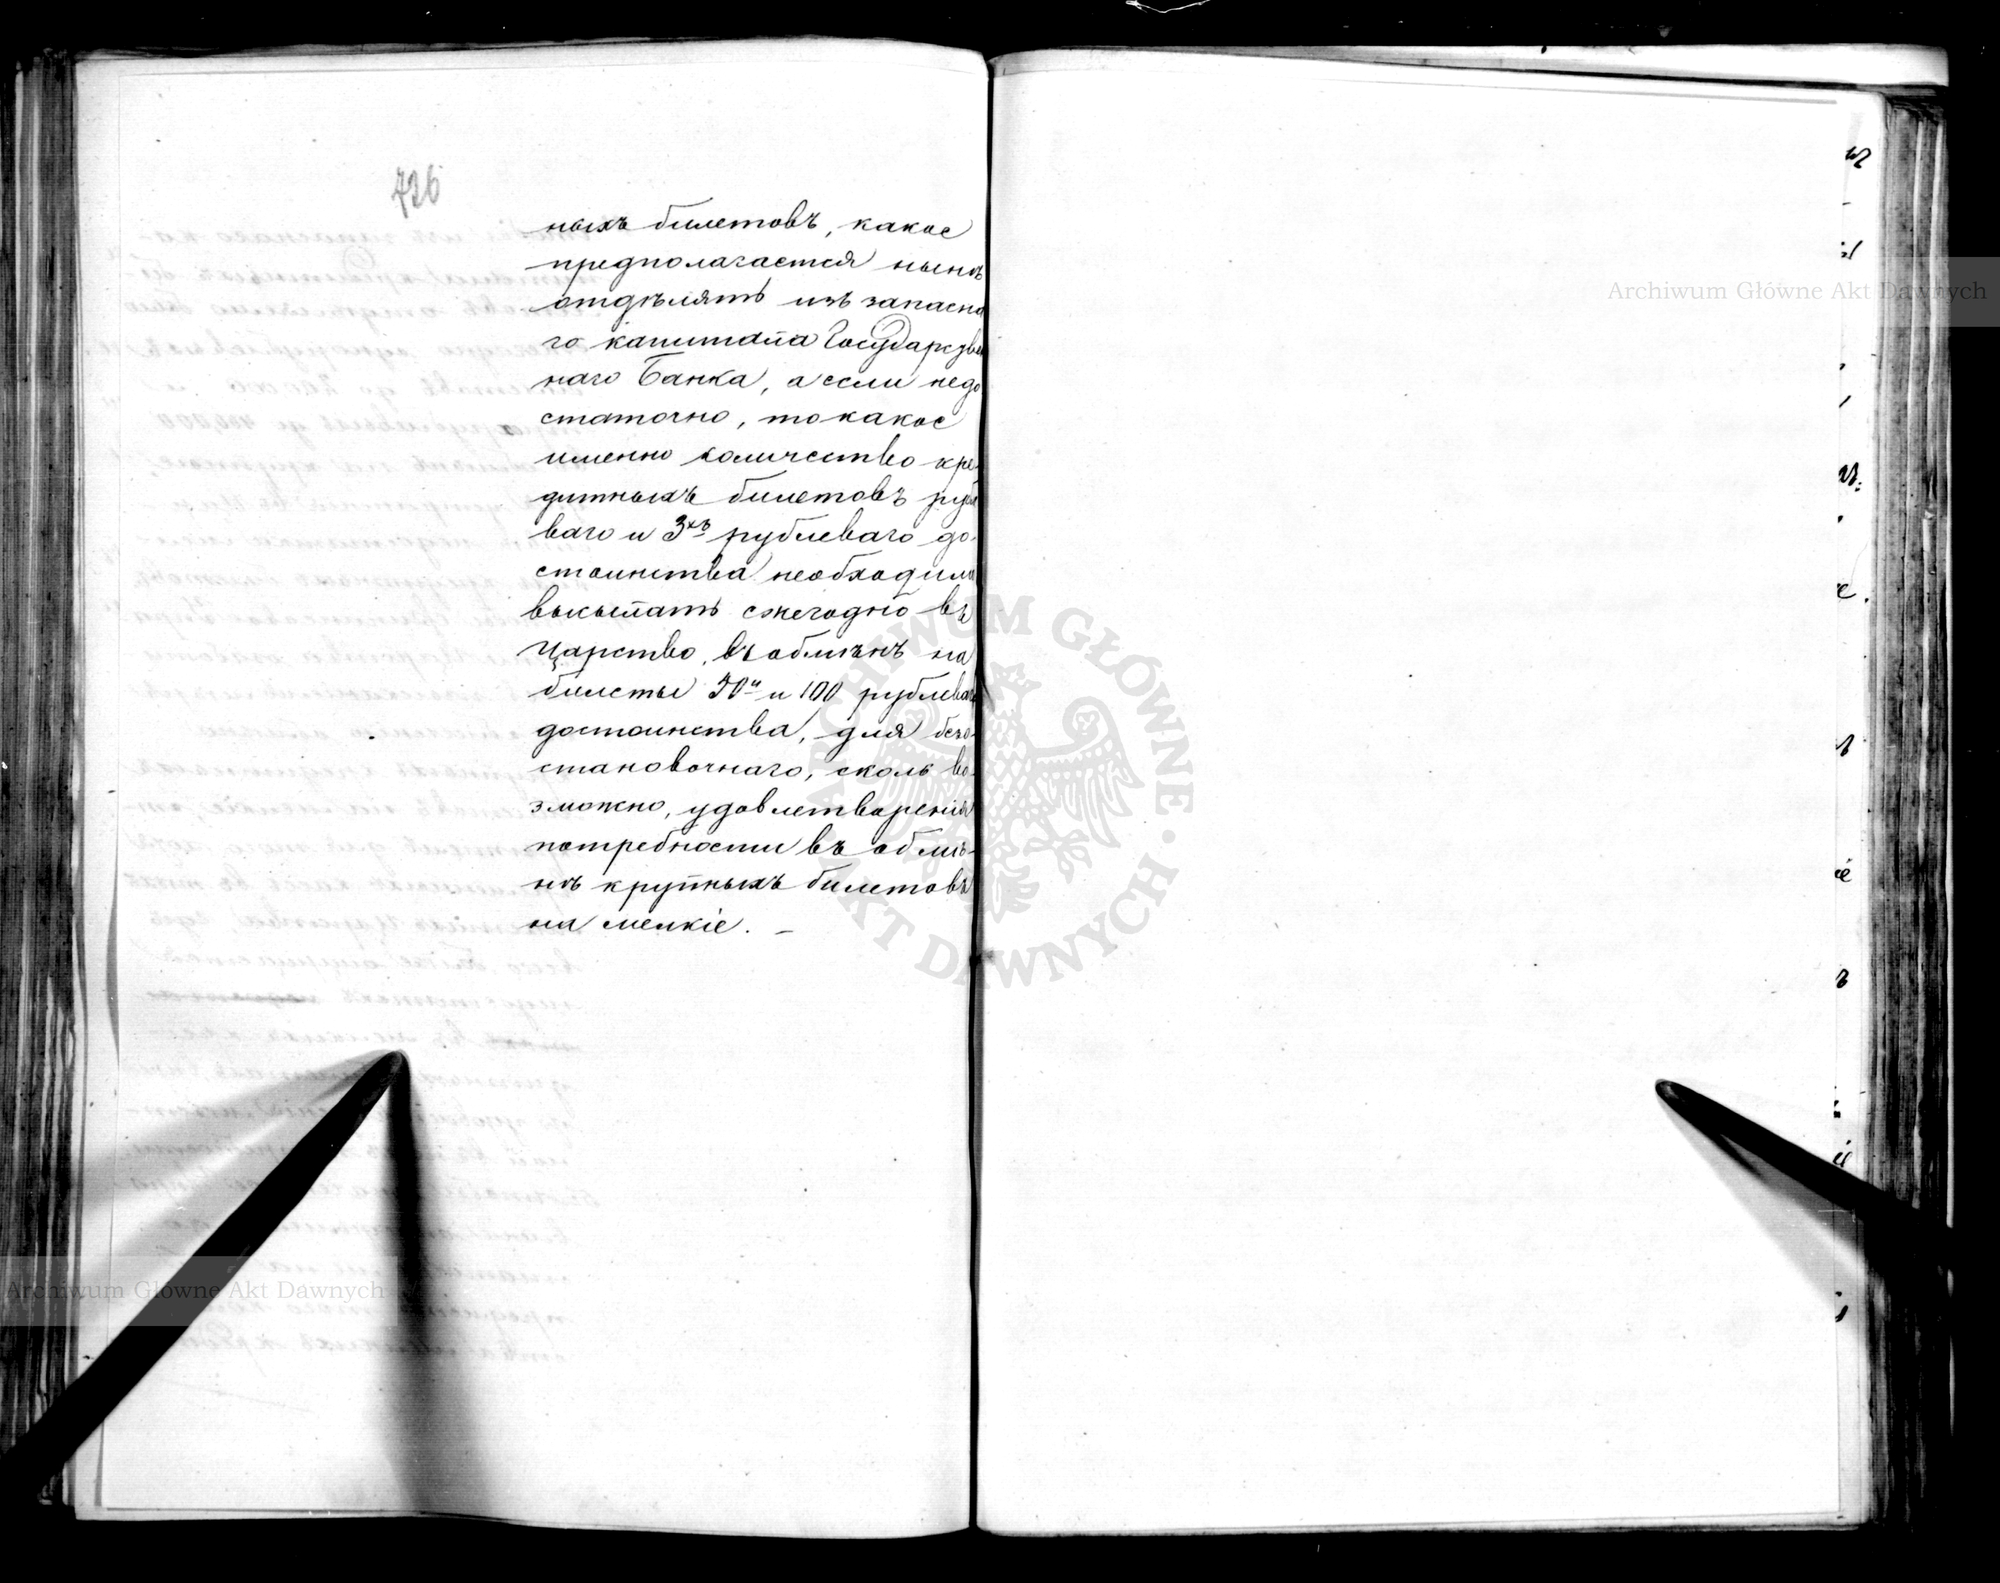 726
ныхъ билетовъ, какое
предполагается нынѣ
отдѣлять изъ запасна
го капитала Государстве
наго Банка, а если недо
статочно, то какое
именно количество кре-
дитныхъ билетовъ рубле
ваго и 3хъ рублеваго до-
стоинства необходимо
высылать ежегодно въ
Царство, въ обмѣнъ на
билеты 50и и 100 рублеваго
достоинства, для безо-
становочнаго, сколь во-
зможно, удовлетворенія
потребности въ обмѣ-
нѣ крупныхъ билетовъ
на мелкіе. –
Archiwum Główne Akt Dawnych
ARCHIWUM GŁÓWNE AKT DAWNYCH
Archiwum Główne Akt Dawnych